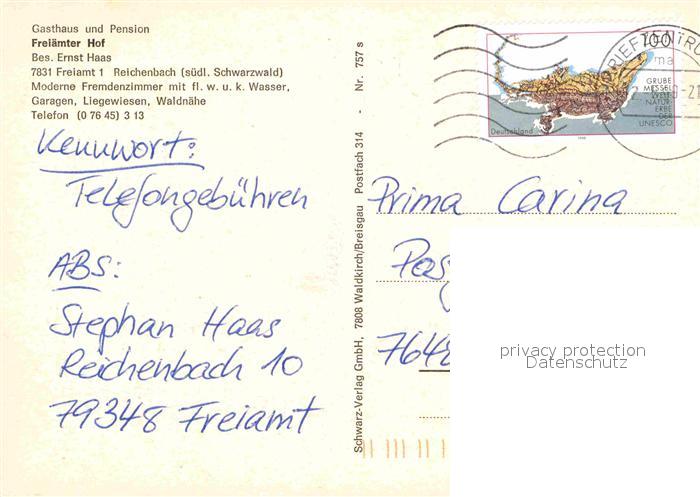 Gasthaus und Pension
Freiämter Hof
Bes. Ernst Haas
7831 Freiamt 1 Reichenbach (südl. Schwarzwald)
Moderne Fremdenzimmer mit fl. w. u. k. Wasser,
Garagen, Liegewiesen, Waldnähe
Telefon (0 76 45) 3 13
Kennwort:
Telefongebühren
ABS:
Stephan Haas
Reichenbach 10
79348 Freiamt
Schwarz-Verlag GmbH, 7808 Waldkirch/Breisgau Postfach 314 - Nr. 757 s
100
GRUBE
MESSEL
WELT
NATUR
ERBE
DER
UNESCO
Deutschland
BRIEFZENTRU
Prima Carina
Pos
7648
privacy protection
Datenschutz